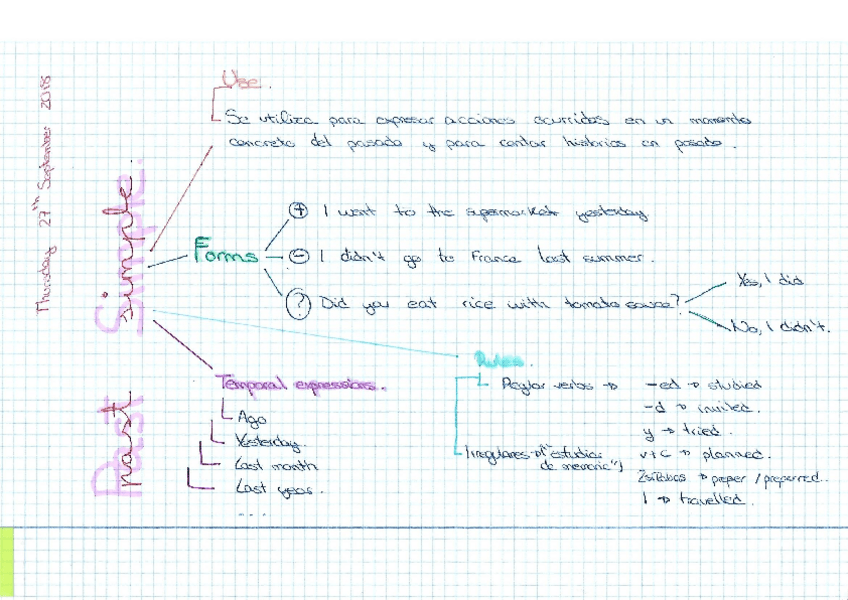 Thursday 27th September 2018
Past Simple.
Use.
Se utiliza para expresar acciones ocurridas en un momento
concreto del pasado y para contar historias en pasado.
Forms
+ I went to the supermarket yesterday
- I didn't go to France last summer.
? Did you eat rice with tomato sauce?
Yes, I did
No, I didn't.
Temporal expressions.
Ago
Yesterday.
Last month
Last year.
....
Rules.
Regular verbs → -ed → studied
-d → invited.
y → tried.
v+c → planned.
→ preper / preferred..
l → travelled.
Irregulares → ("estudiar
de memoria")